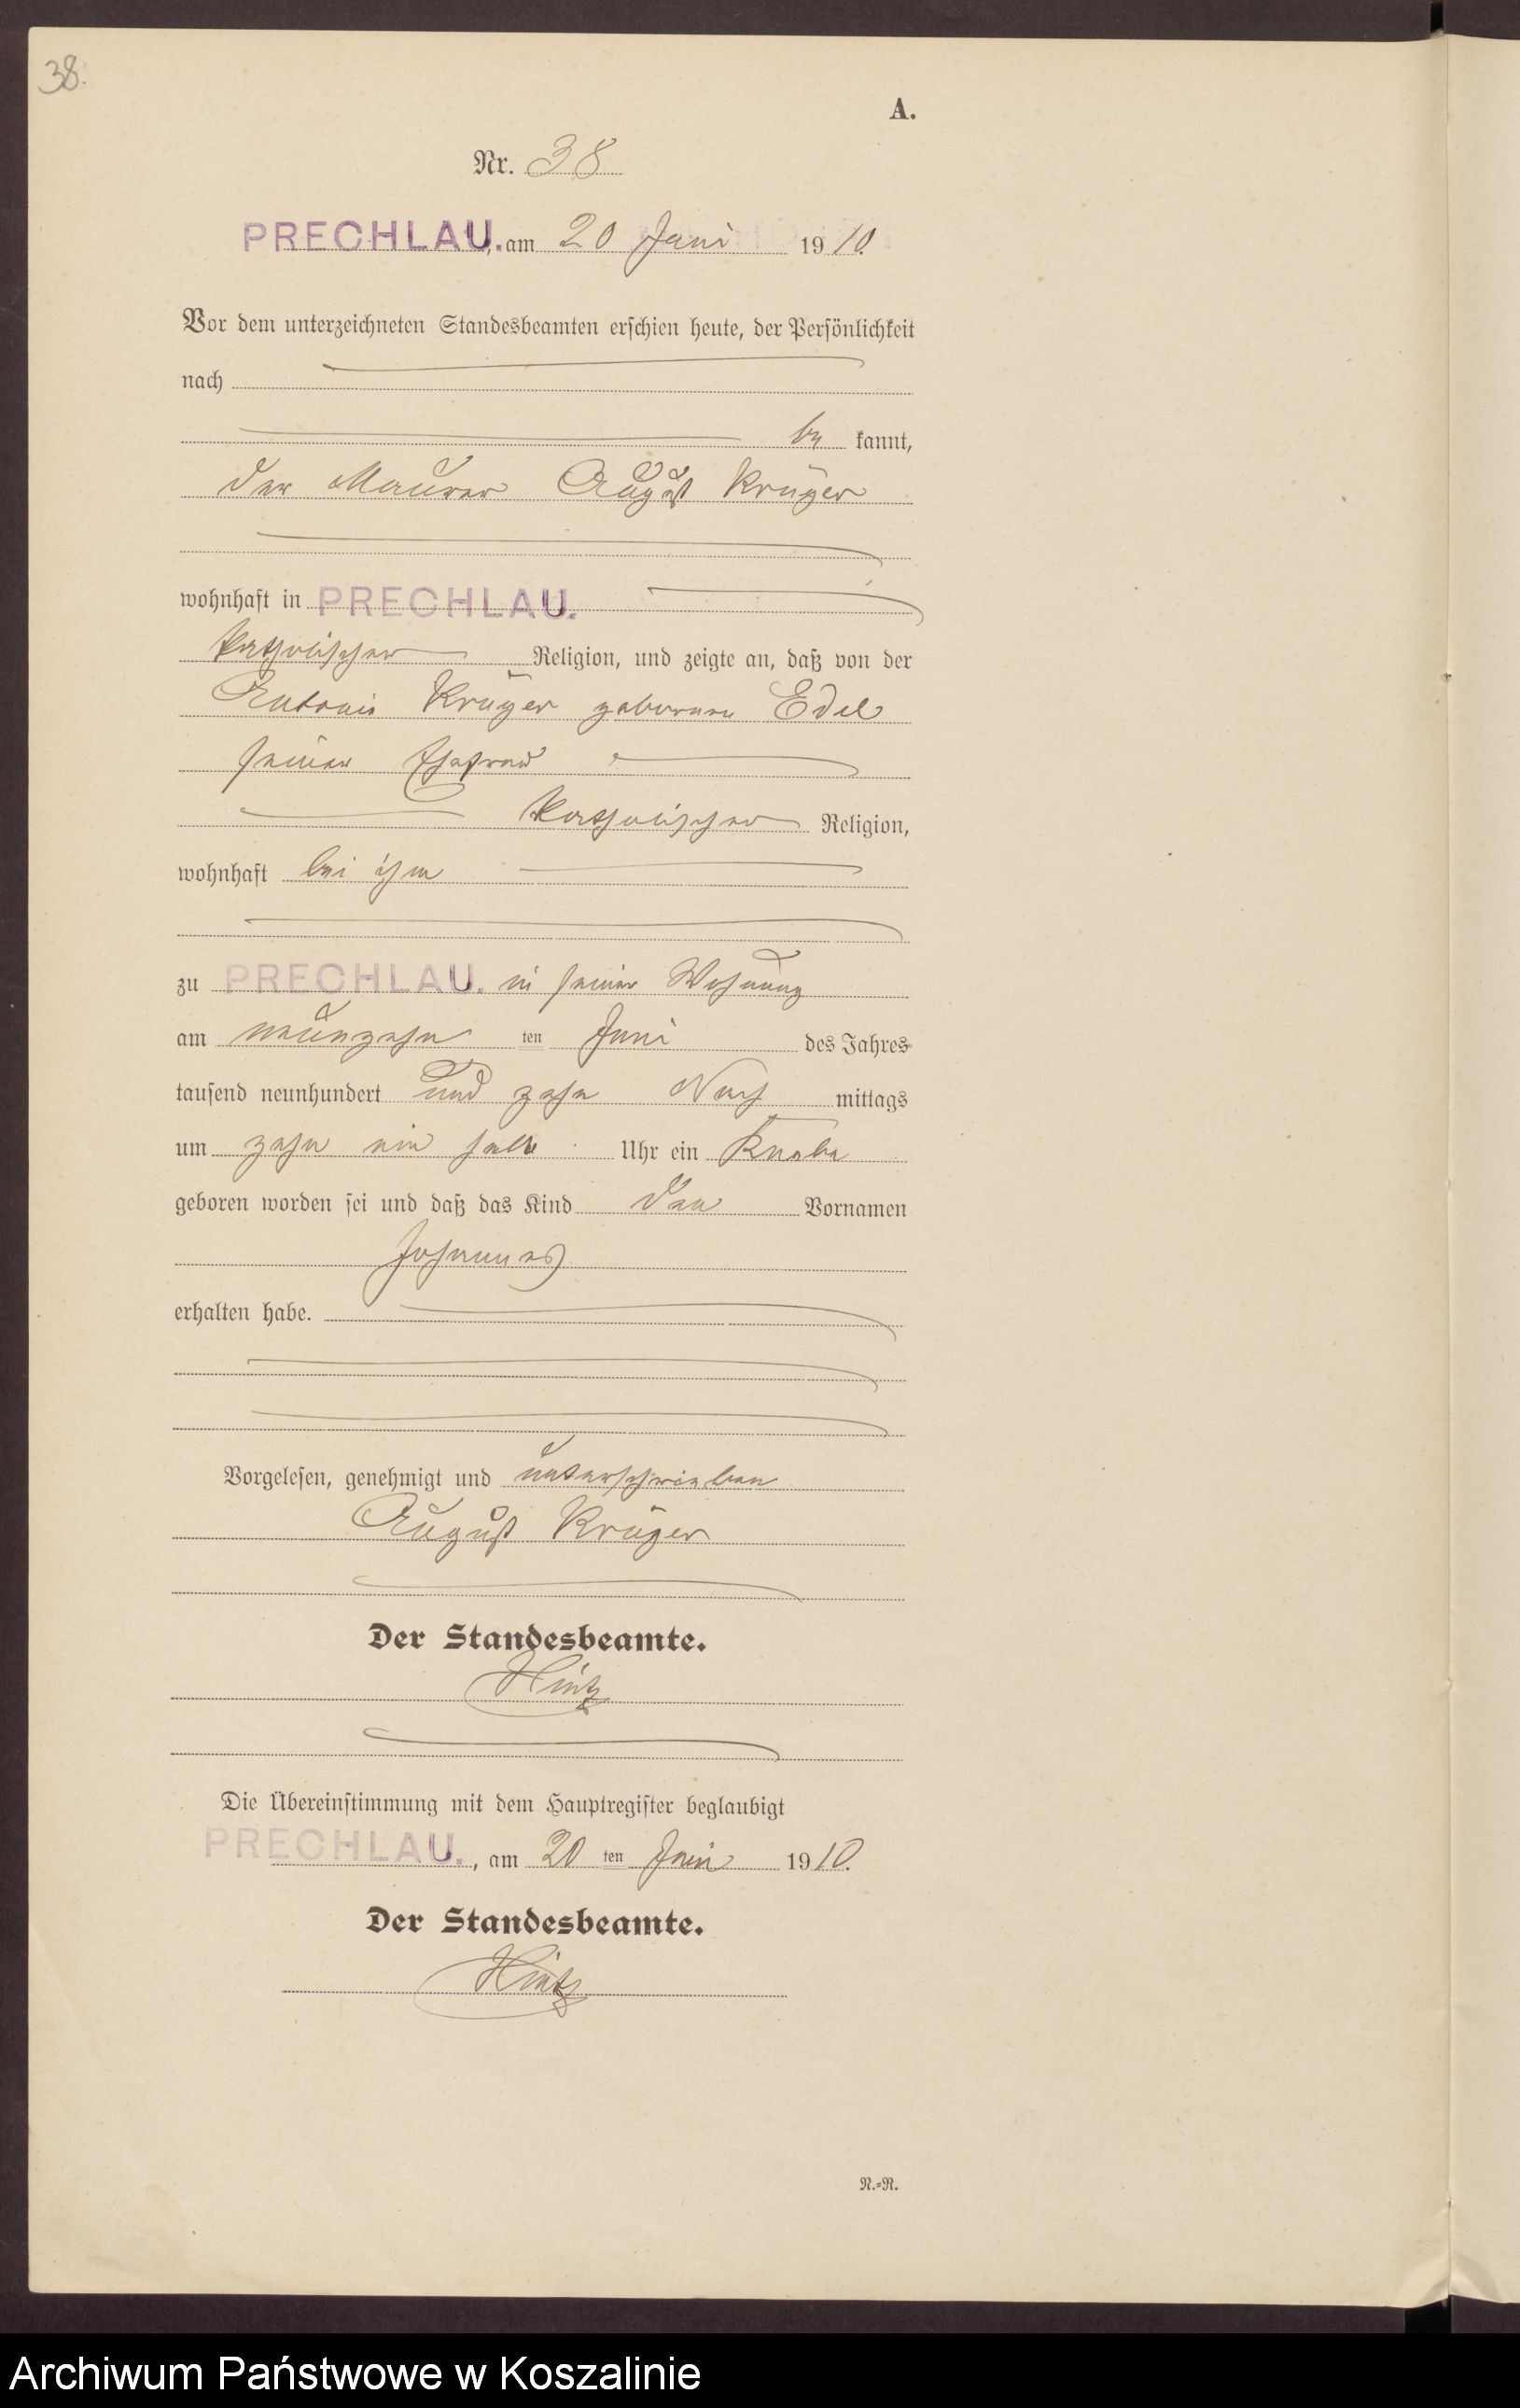 38.
A.
Nr. 38
PRECHLAU., am 20 Juni 1910.
Vor dem unterzeichneten Standesbeamten erschien heute, der Persönlichkeit
nach
be kannt,
der Maurer August Krüger
wohnhaft in PRECHLAU.
katholischer Religion, und zeigte an, daß von der
Antonie Krüger geborene Edel
seiner Ehefrau
katholischer Religion,
wohnhaft bei ihm
zu PRECHLAU. in seiner Wohnung
am neunzehn ten Juni des Jahres
tausend neunhundert und zehn Nach mittags
um zehn ein halb Uhr ein Knabe
geboren worden sei und daß das Kind den Vornamen
Johannes
erhalten habe.
Vorgelesen, genehmigt und unterschrieben
August Krüger
Der Standesbeamte.
Hintz
Die Übereinstimmung mit dem Hauptregister beglaubigt
PRECHLAU., am 20 ten Juni 1910.
Der Standesbeamte.
Hintz
N.=R.
Archiwum Państwowe w Koszalinie